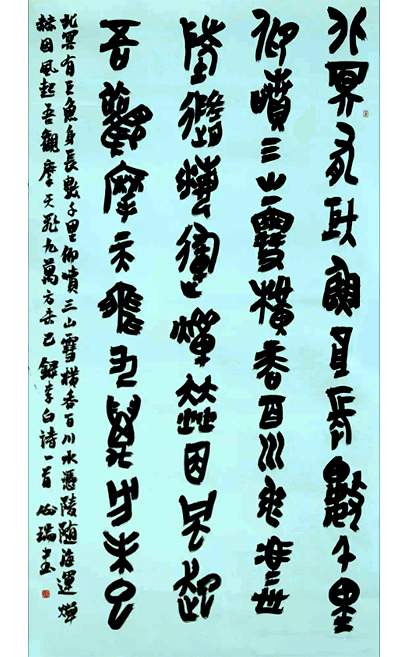 北冥有巨魚身長數千里
仰噴三山雪橫吞百川水憑
陵隨海運燀赫因風起
吾觀摩天飛九萬方未已
北冥有巨魚身長數千里仰噴三山雪橫吞百川水憑陵随海運燀
赫因風起吾觀摩天飛九萬方未已 錄李白诗一首 瑞